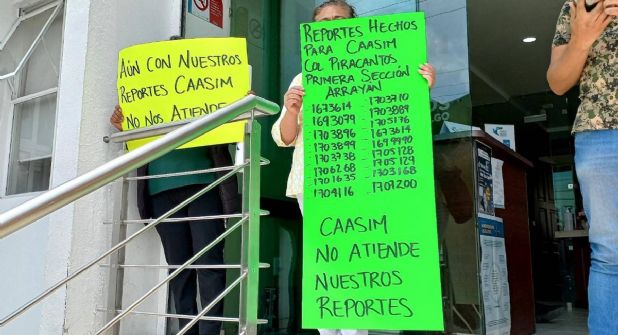 AÚN CON NUESTROS
REPORTES CAASIM
NO NOS ATIENDE
REPORTES HECHOS
PARA CAASIM
COL PIRACANTOS
PRIMERA SECCIÓN
ARRAYAN
1673614 - 1703710
1693079 - 1703889
1703896 - 1705176
1703899 - 1673614
1703738 - 1699990
1706268 - 1705128
1701635 - 1705129
1704116 - 1703168
- 1707200
CAASIM
NO ATIENDE
NUESTROS
REPORTES
GO